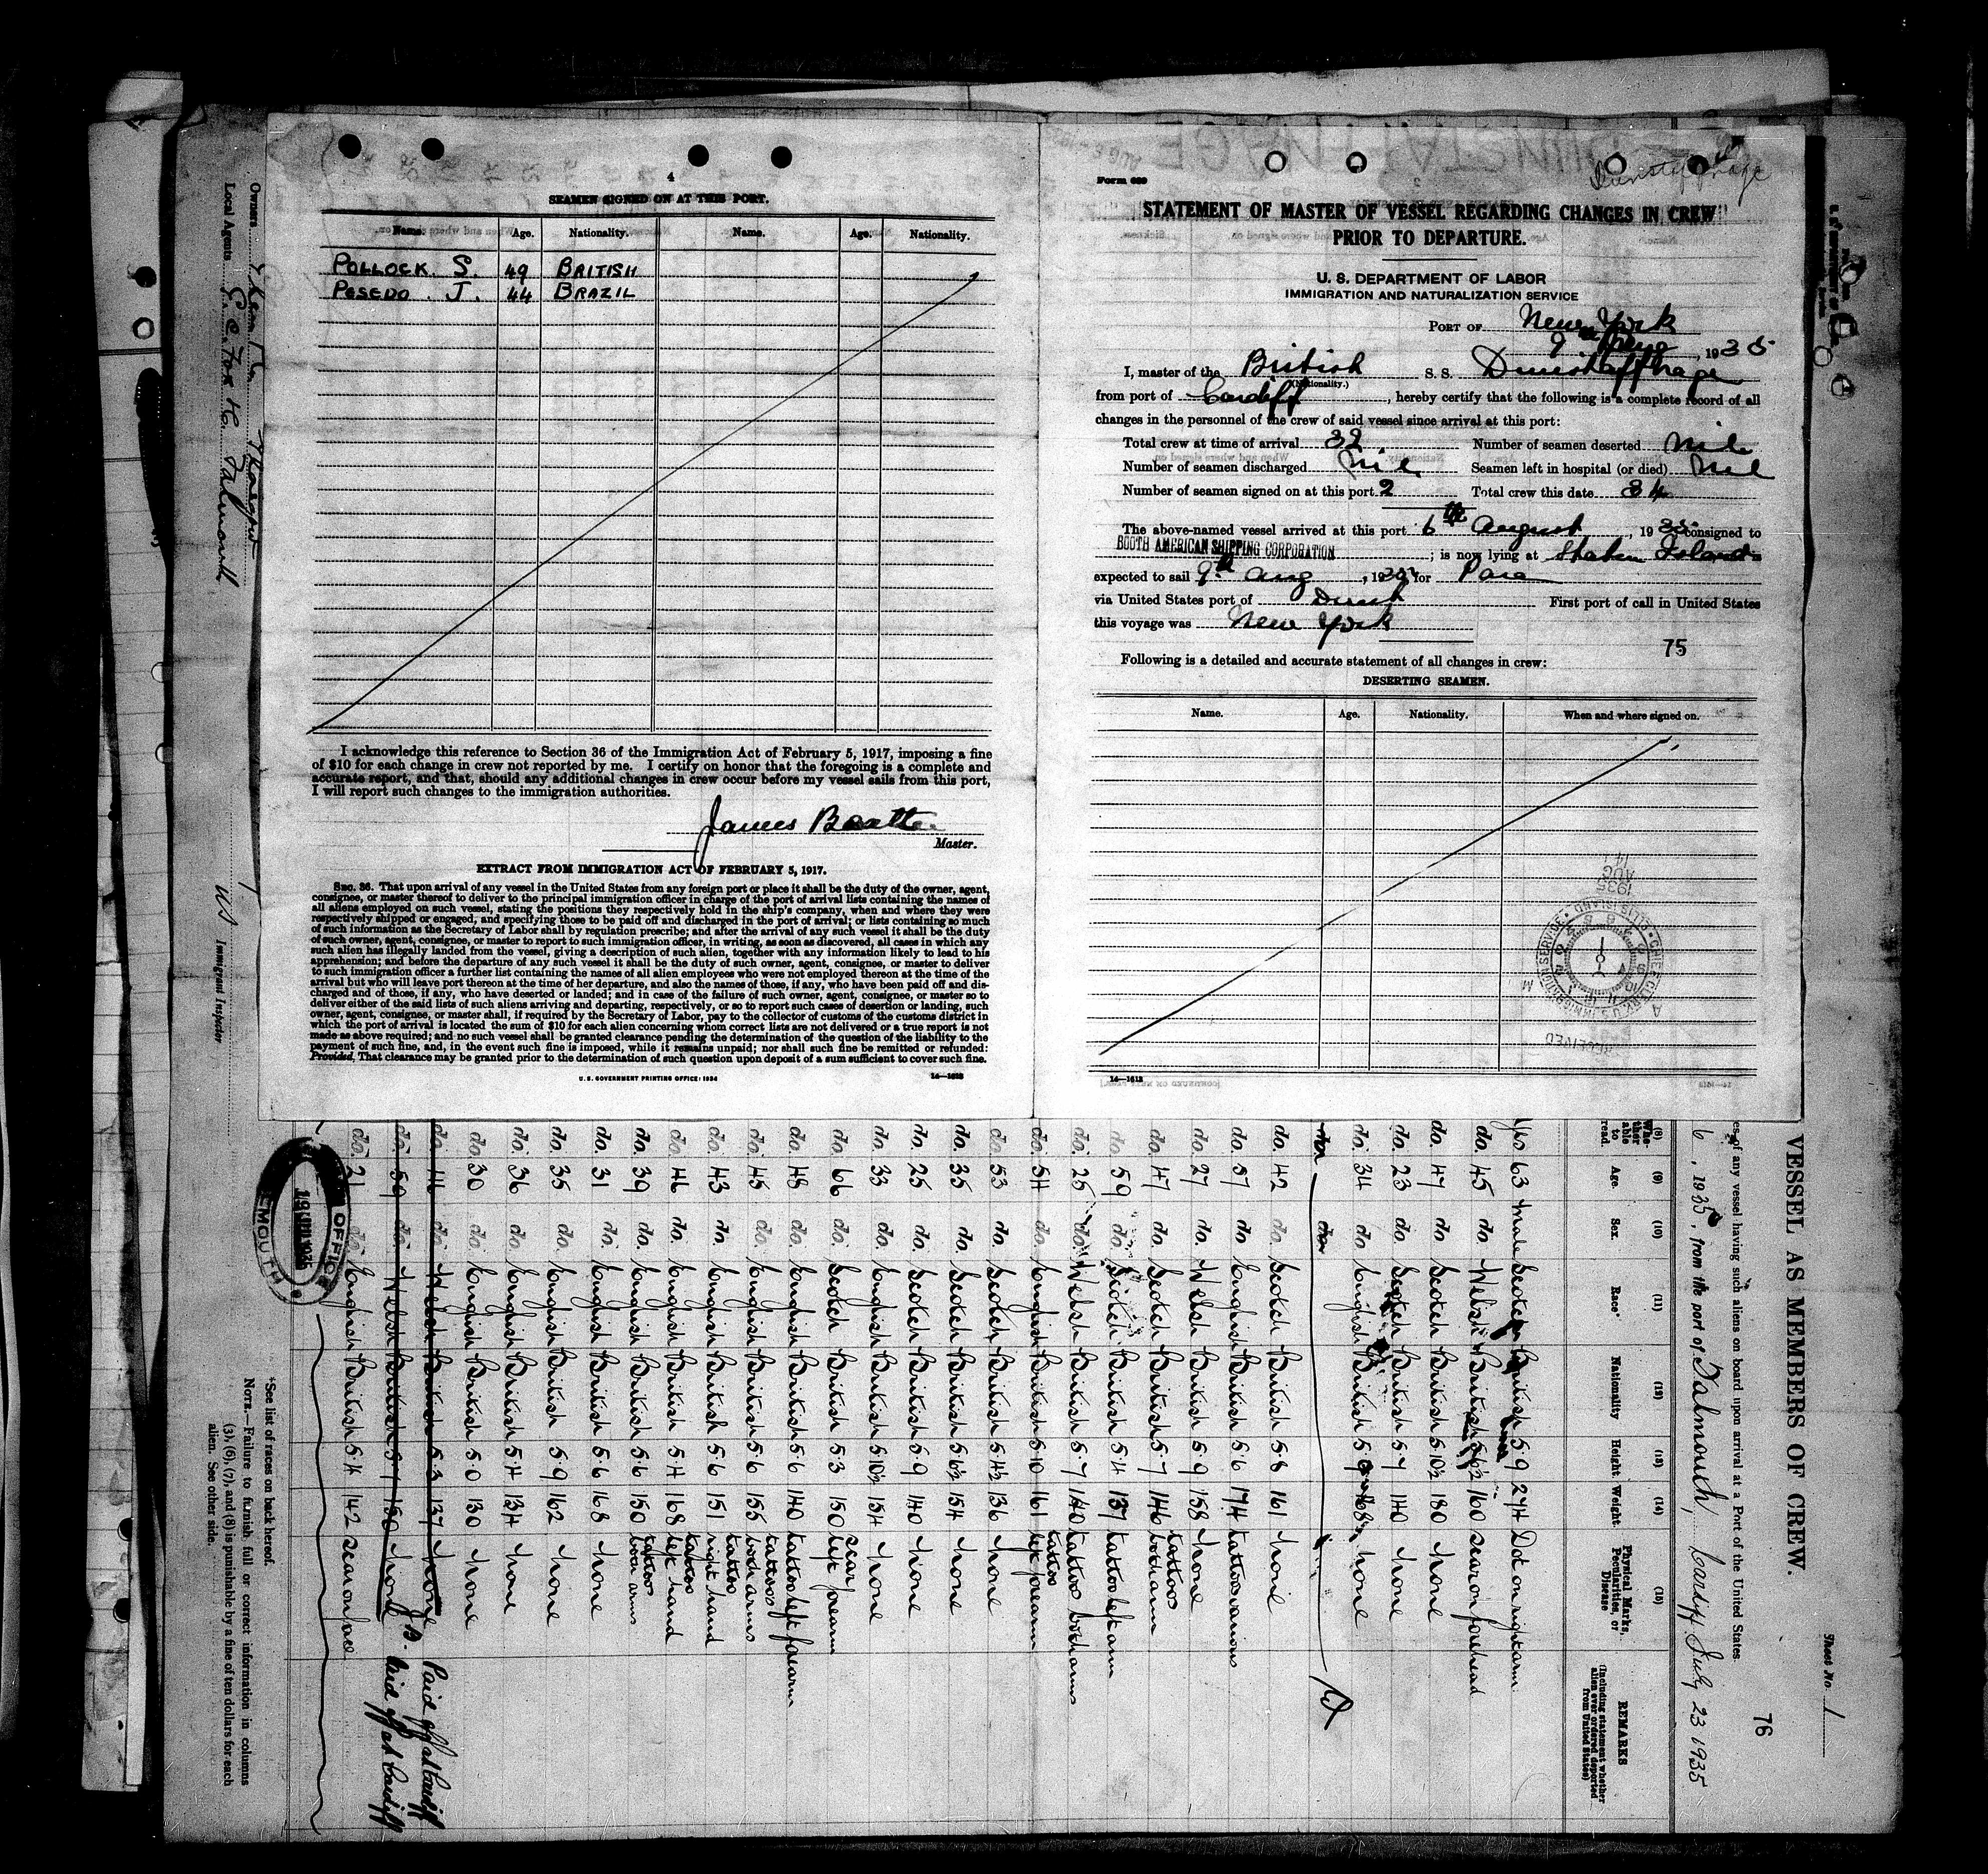 4
SEAMEN SIGNED ON AT THIS PORT.
Name. Age. Nationality. Name. Age. Nationality.
POLLOCK S. 49 BRITISH
POSEDO. J. 44 BRAZIL
I acknowledge this reference to Section 36 of the Immigration Act of February 5, 1917, imposing a fine
of $10 for each change in crew not reported by me. I certify on honor that the foregoing is a complete and
accurate report, and that, should any additional changes in crew occur before my vessel sails from this port,
I will report such changes to the immigration authorities.
James
Master.
EXTRACT FROM IMMIGRATION ACT OF FEBRUARY 5, 1917.
SEC. 36. That upon arrival of any vessel in the United States from any foreign port or place it shall be the duty of the owner, agent,
consignee, or master thereof to deliver to the principal immigration officer in charge of the port of arrival lists containing the names of
all aliens employed on such vessel, stating the positions they respectively hold in the ship's company, when and where they were
respectively shipped or engaged, and specifying those to be paid off and discharged in the port of arrival; or lists containing so much
of such information as the Secretary of Labor shall by regulation prescribe; and after the arrival of any such vessel it shall be the duty
of such owner, agent, consignee, or master to report to such immigration officer, in writing, as soon as discovered, all cases in which any
such alien has illegally landed from the vessel, giving a description of such alien, together with any information likely to lead to his
apprehension; and before the departure of any such vessel it shall be the duty of such owner, agent, consignee, or master to deliver
to such immigration officer a further list containing the names of all alien employees who were not employed thereon at the time of the
arrival but who will leave port thereon at the time of her departure, and also the names of those, if any, who have been paid off and dis-
charged and of those, if any, who have deserted or landed; and in case of the failure of such owner, agent, consignee, or master so to
deliver either of the said lists of such aliens arriving and departing, respectively, or so to report such cases of desertion or landing, such
owner, agent, consignee, or master shall, if required by the Secretary of Labor, pay to the collector of customs of the customs district in
which the port of arrival is located the sum of $10 for each alien concerning whom correct lists are not delivered or a true report is not
made as above required; and no such vessel shall be granted clearance pending the determination of the question of the liability to the
payment of such fine, and, in the event such fine is imposed, while it remains unpaid; nor shall such fine be remitted or refunded:
Provided, That clearance may be granted prior to the determination of such question upon deposit of a sum sufficient to cover such fine.
U. S. GOVERNMENT PRINTING OFFICE: 1934 14—1613
Form 689
Dunstaffnage
STATEMENT OF MASTER OF VESSEL REGARDING CHANGES IN CREW
PRIOR TO DEPARTURE.
U. S. DEPARTMENT OF LABOR
IMMIGRATION AND NATURALIZATION SERVICE
PORT OF New York
9th Aug, 1935
I, master of the British S. S. Dunstaffnage
(Nationality.)
from port of Cardiff, hereby certify that the following is a complete record of all
changes in the personnel of the crew of said vessel since arrival at this port:
Total crew at time of arrival 32 Number of seamen deserted Nil
Number of seamen discharged Nil Seamen left in hospital (or died) Nil
Number of seamen signed on at this port 2 Total crew this date 34
The above-named vessel arrived at this port 6th August, 1935 consigned to
BOOTH AMERICAN SHIPPING CORPORATION; is now lying at Staten Island
expected to sail 9th Aug, 1935 for Para
via United States port of Direct First port of call in United States
this voyage was New York
75
Following is a detailed and accurate statement of all changes in crew:
DESERTING SEAMEN.
Name. Age. Nationality. When and where signed on.
14—1613
VESSEL AS MEMBERS OF CREW.
Sheet No. 1
76
es of any vessel having such aliens on board upon arrival at a Port of the United States.
6, 1935, from the port of Falmouth, Cardiff July 23 1935
(8) Whether able to read. (9) Age. (10) Sex. (11) Race* (12) Nationality (13) Height. (14) Weight. (15) Physical Marks, Peculiarities, or Disease REMARKS (Including statement whether alien ever ordered deported from United States)
Yes 63 Male Scotch British 5.9 274 Dot on right arm
do. 45 do Welsh British 5.6½ 160 scar on forehead
do. 47 do. Scotch British 5.10½ 180 none
do. 23 do Scotch British 5.7 140 none
do 34 do English British 5.9 168 none
do. 42 do. Scotch British 5.8 161 none
do. 57 do. English British 5.6 174 tattoos various
do. 27 do. Welsh British 5.9 158 none
do. 47 do. Scotch British 5.7 146 tattoos both arm
do 59 do Scotch British 5.4 137 tattoo left arm
do. 25 do. Welsh British 5.7 140 tattoos both arms
do. 54 do. English British 5.10 161 tattoo left forearm
do. 53 do. Scotch British 5.4½ 136 none
do. 35 do. Scotch British 5.6½ 154 none
do. 25 do. Scotch British 5.9 140 none
do. 33 do. English British 5.10½ 154 none
do. 66 do. Scotch British 5.3 150 scar left forearm
do. 48 do. English British 5.6 140 tattoo left forearm
do. 45 do. English British 5.6 155 tattoos both arms
do. 43 do. English British 5.6 151 tattoo right hand
do. 46 do. English British 5.4 168 tattoos left hand
do. 39 do. English British 5.6 150 tattoos both arms
do. 31 do. English British 5.6 168 none
do. 35 do. English British 5.9 162 none
do. 36 do. English British 5.4 134 none
do. 30 do. English British 5.0 130 none
do. 44 do. Welsh British 5.3 137 none Paid off at Cardiff
do. 59 do. Welsh British 5.7 150 none Paid off at Cardiff
do. 21 do. English British 5.4 142 scar on face
*See list of races on back hereof.
NOTE.—Failure to furnish full or correct information in columns
(3), (6), (7), and (8) is punishable by a fine of ten dollars for each
alien. See other side.
Owners
Local Agents E. C. Fox & Co. Falmouth
Immigrant Inspector